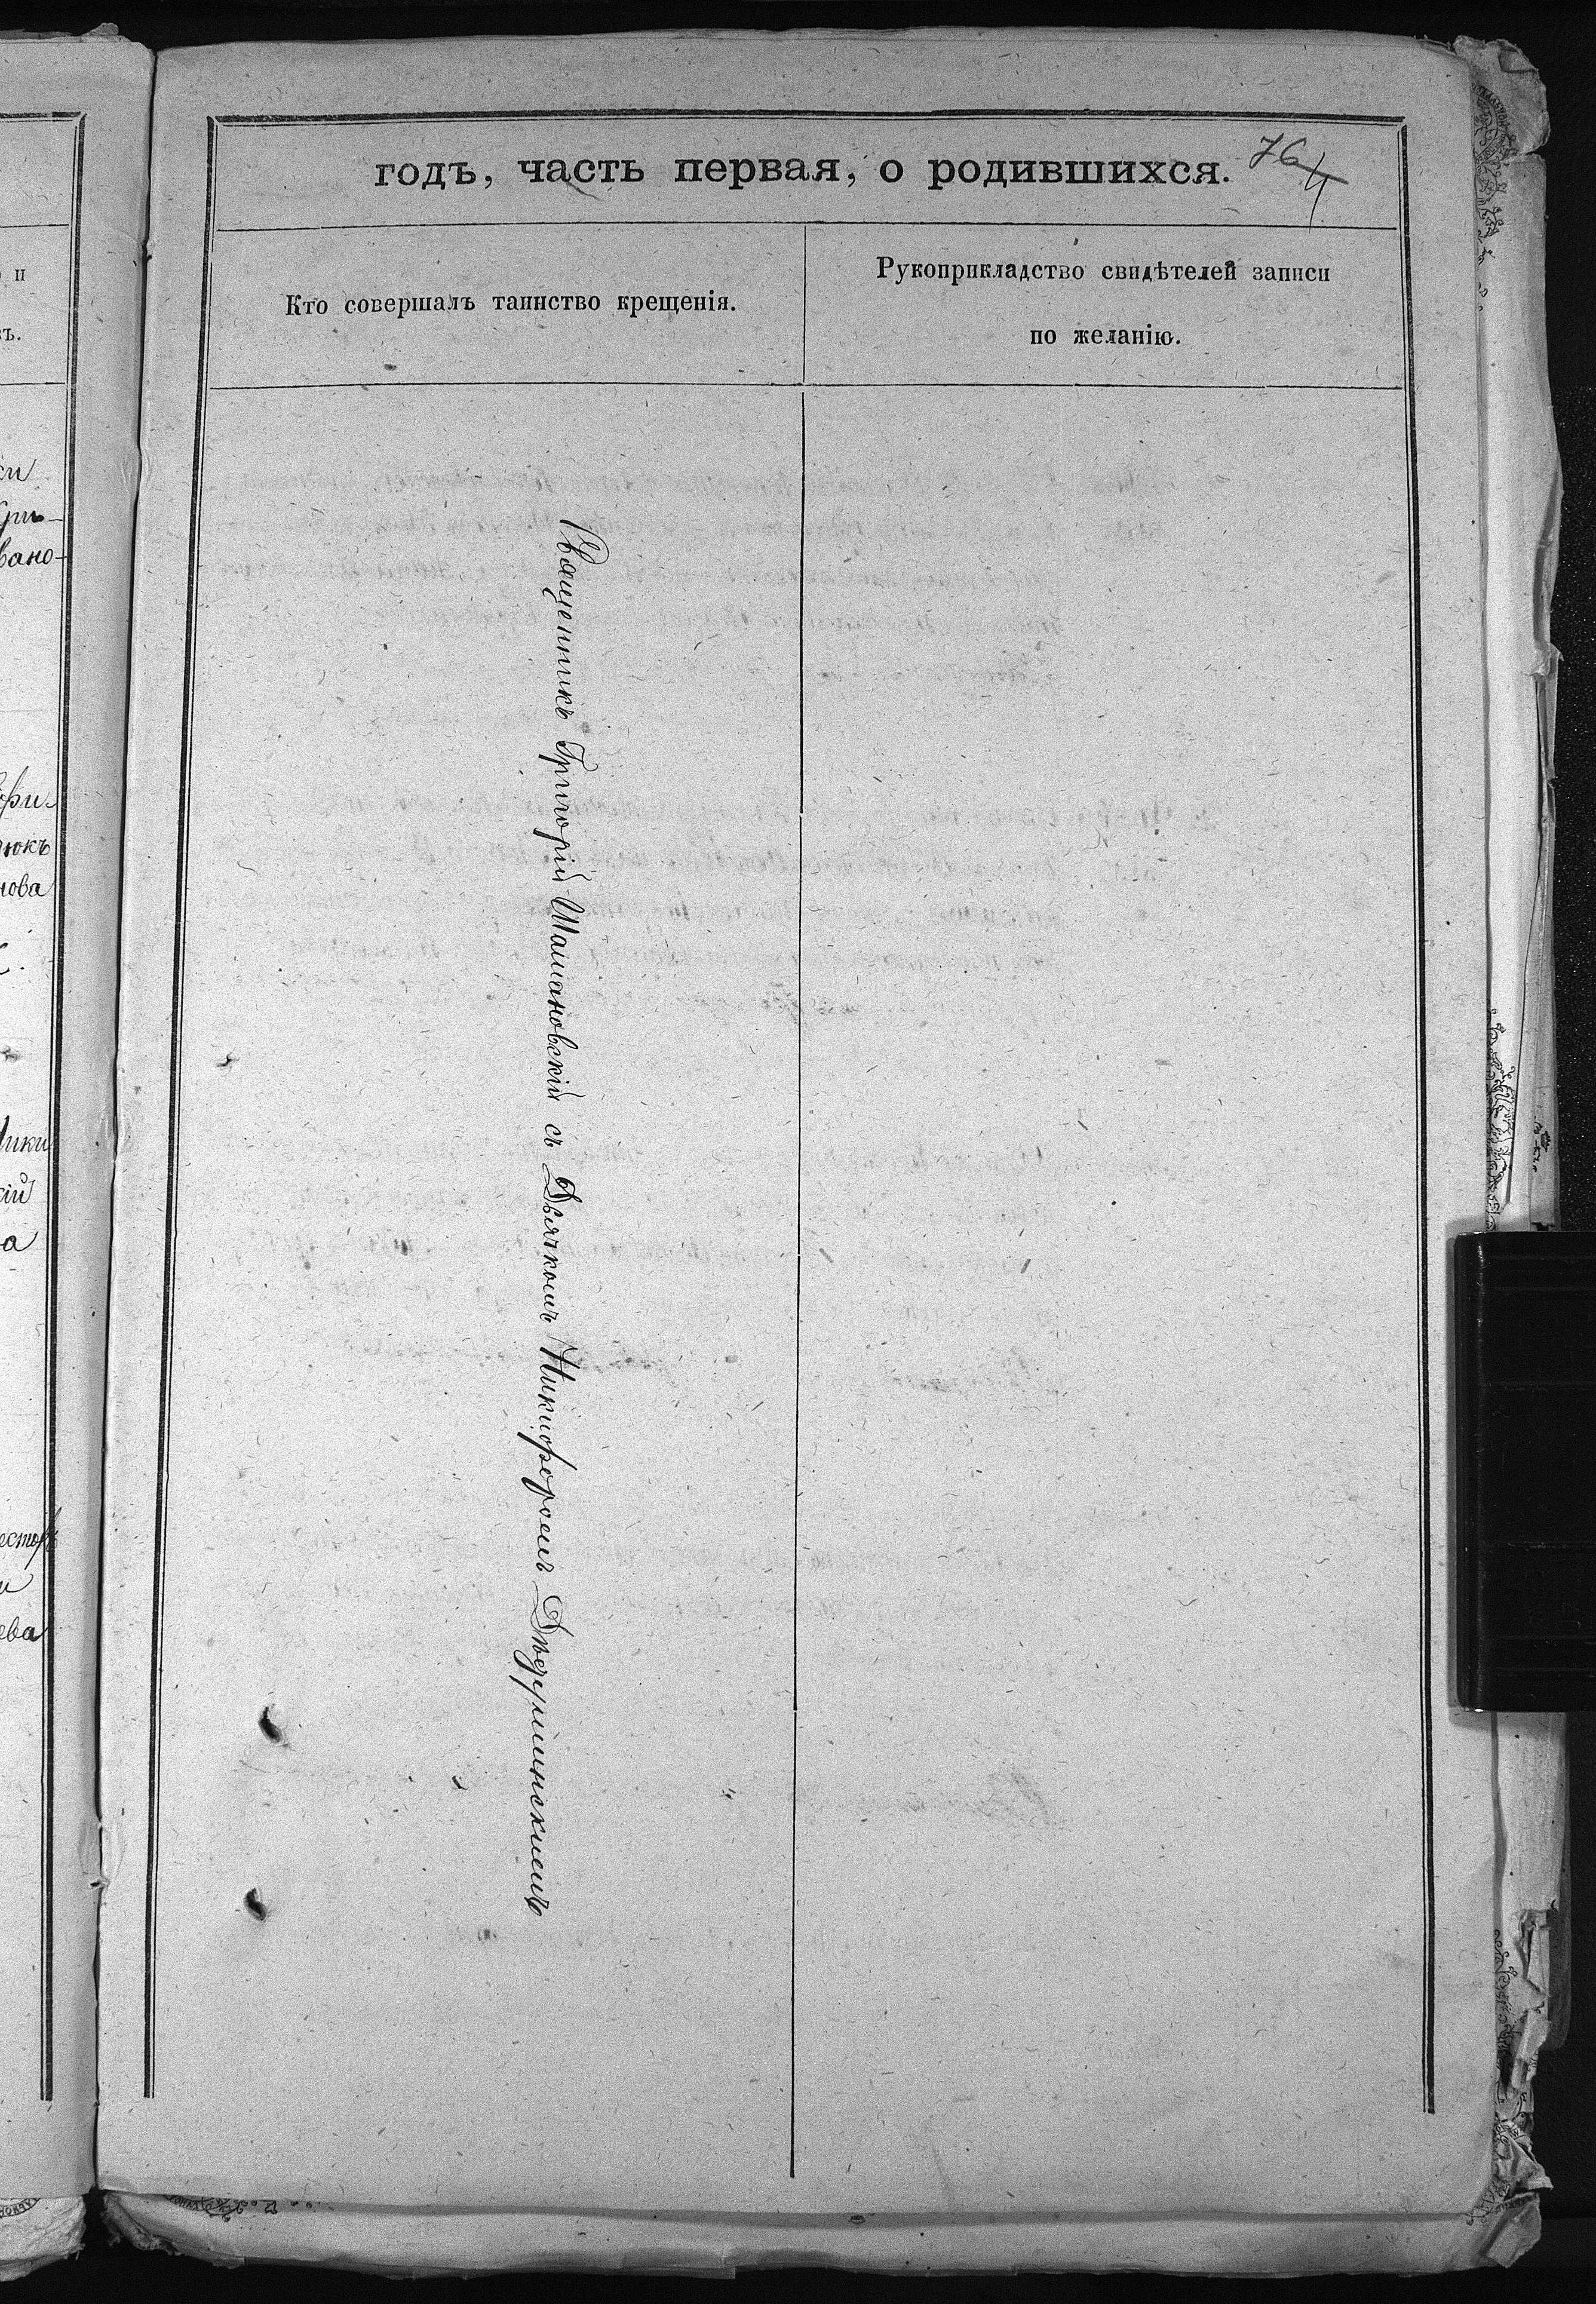 годъ, часть первая, о родившихся.
76
4
Кто совершалъ таинство крещенія.
Рукоприкладство свидѣтелей записи
по желанію.
Священникъ Григорій Шашановскій съ Дьячкомъ Никифоромъ
и
ъ.
ки
вано-
нова
ики
кій
а
ева